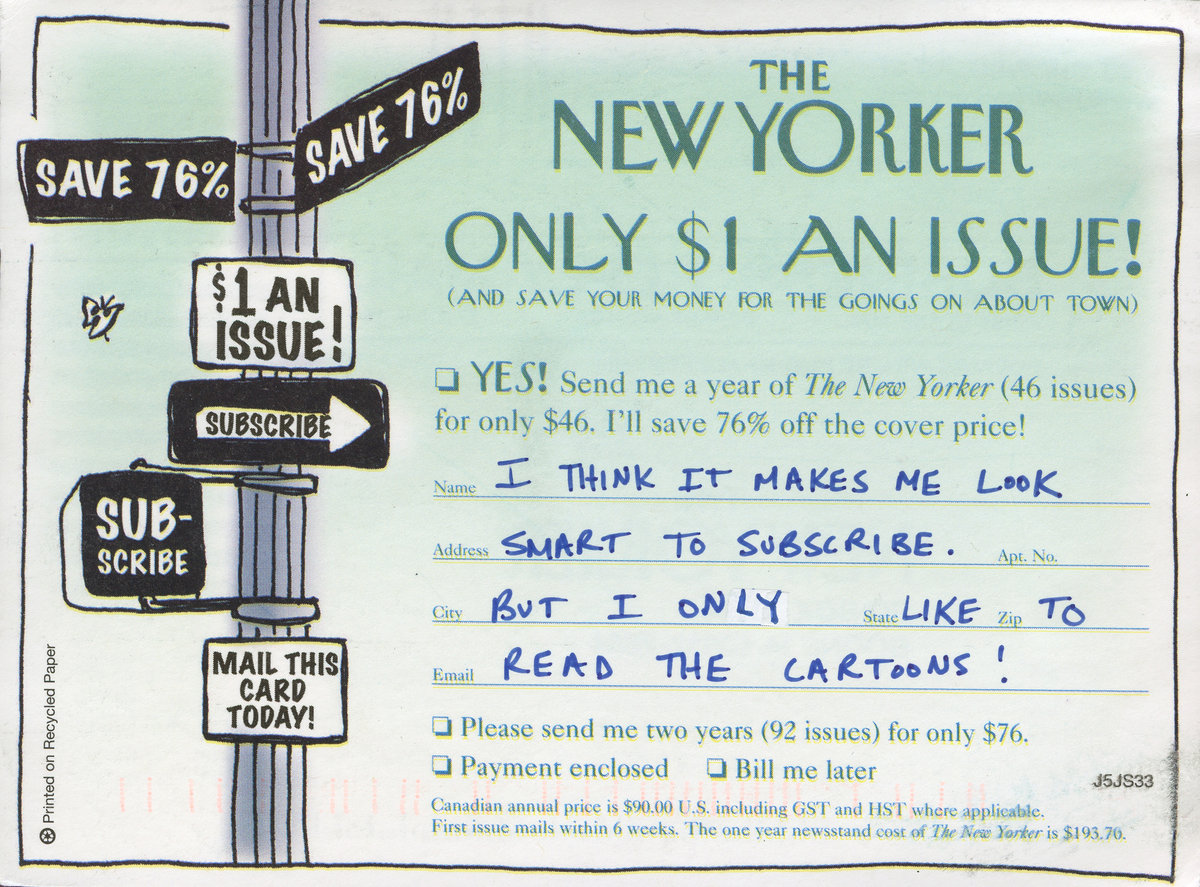 SAVE 76%
SAVE 76%
$1 AN
ISSUE!
SUBSCRIBE
SUB-
SCRIBE
MAIL THIS
CARD
TODAY!
Printed on Recycled Paper
THE
NEW YORKER
ONLY $1 AN ISSUE!
(AND SAVE YOUR MONEY FOR THE GOINGS ON ABOUT TOWN)
❏ YES! Send me a year of The New Yorker (46 issues)
for only $46. I'll save 76% off the cover price!
Name I THINK IT MAKES ME LOOK
Address SMART TO SUBSCRIBE. Apt. No.
City BUT I ONLY State LIKE Zip TO
Email READ THE CARTOONS!
❏ Please send me two years (92 issues) for only $76.
❏ Payment enclosed ❏ Bill me later
J5JS33
Canadian annual price is $90.00 U.S. including GST and HST where applicable.
First issue mails within 6 weeks. The one year newsstand cost of The New Yorker is $193.70.